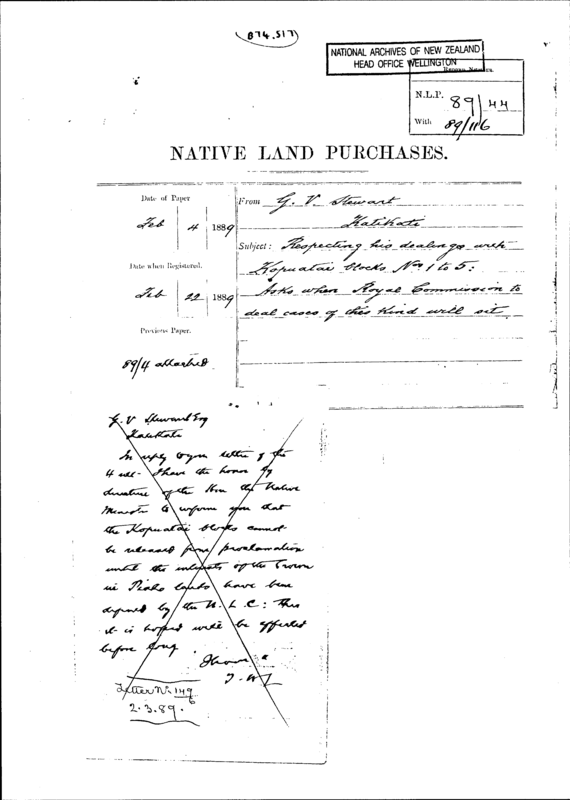 874.517
NATIONAL ARCHIVES OF NEW ZEALAND
HEAD OFFICE WELLINGTON
N.L.P. 89/44
With 89/116
NATIVE LAND PURCHASES.
Date of Paper
Feb 4 1889
Date when Registered.
Feb 22 1889
Previous Paper.
89/4 attached
From G. V Stewart
Katikati
Subject: Respecting his dealings with
Kopuatai blocks Nos 1 to 5:
Asks when Royal Commission to
deal cases of this kind will sit
G. V Stewart Esq
Katikati
In reply to your letter of the
4 I have the honor by
direction of the Hon the Native
Minister to inform you that
the Kopuatai blocks cannot
be released from proclamation
until the interests of the Crown
in Piako lands have been
defined by the N. L. C: This
it is hoped will be effected
before long
I have
Letter No 149/6
2.3.89.